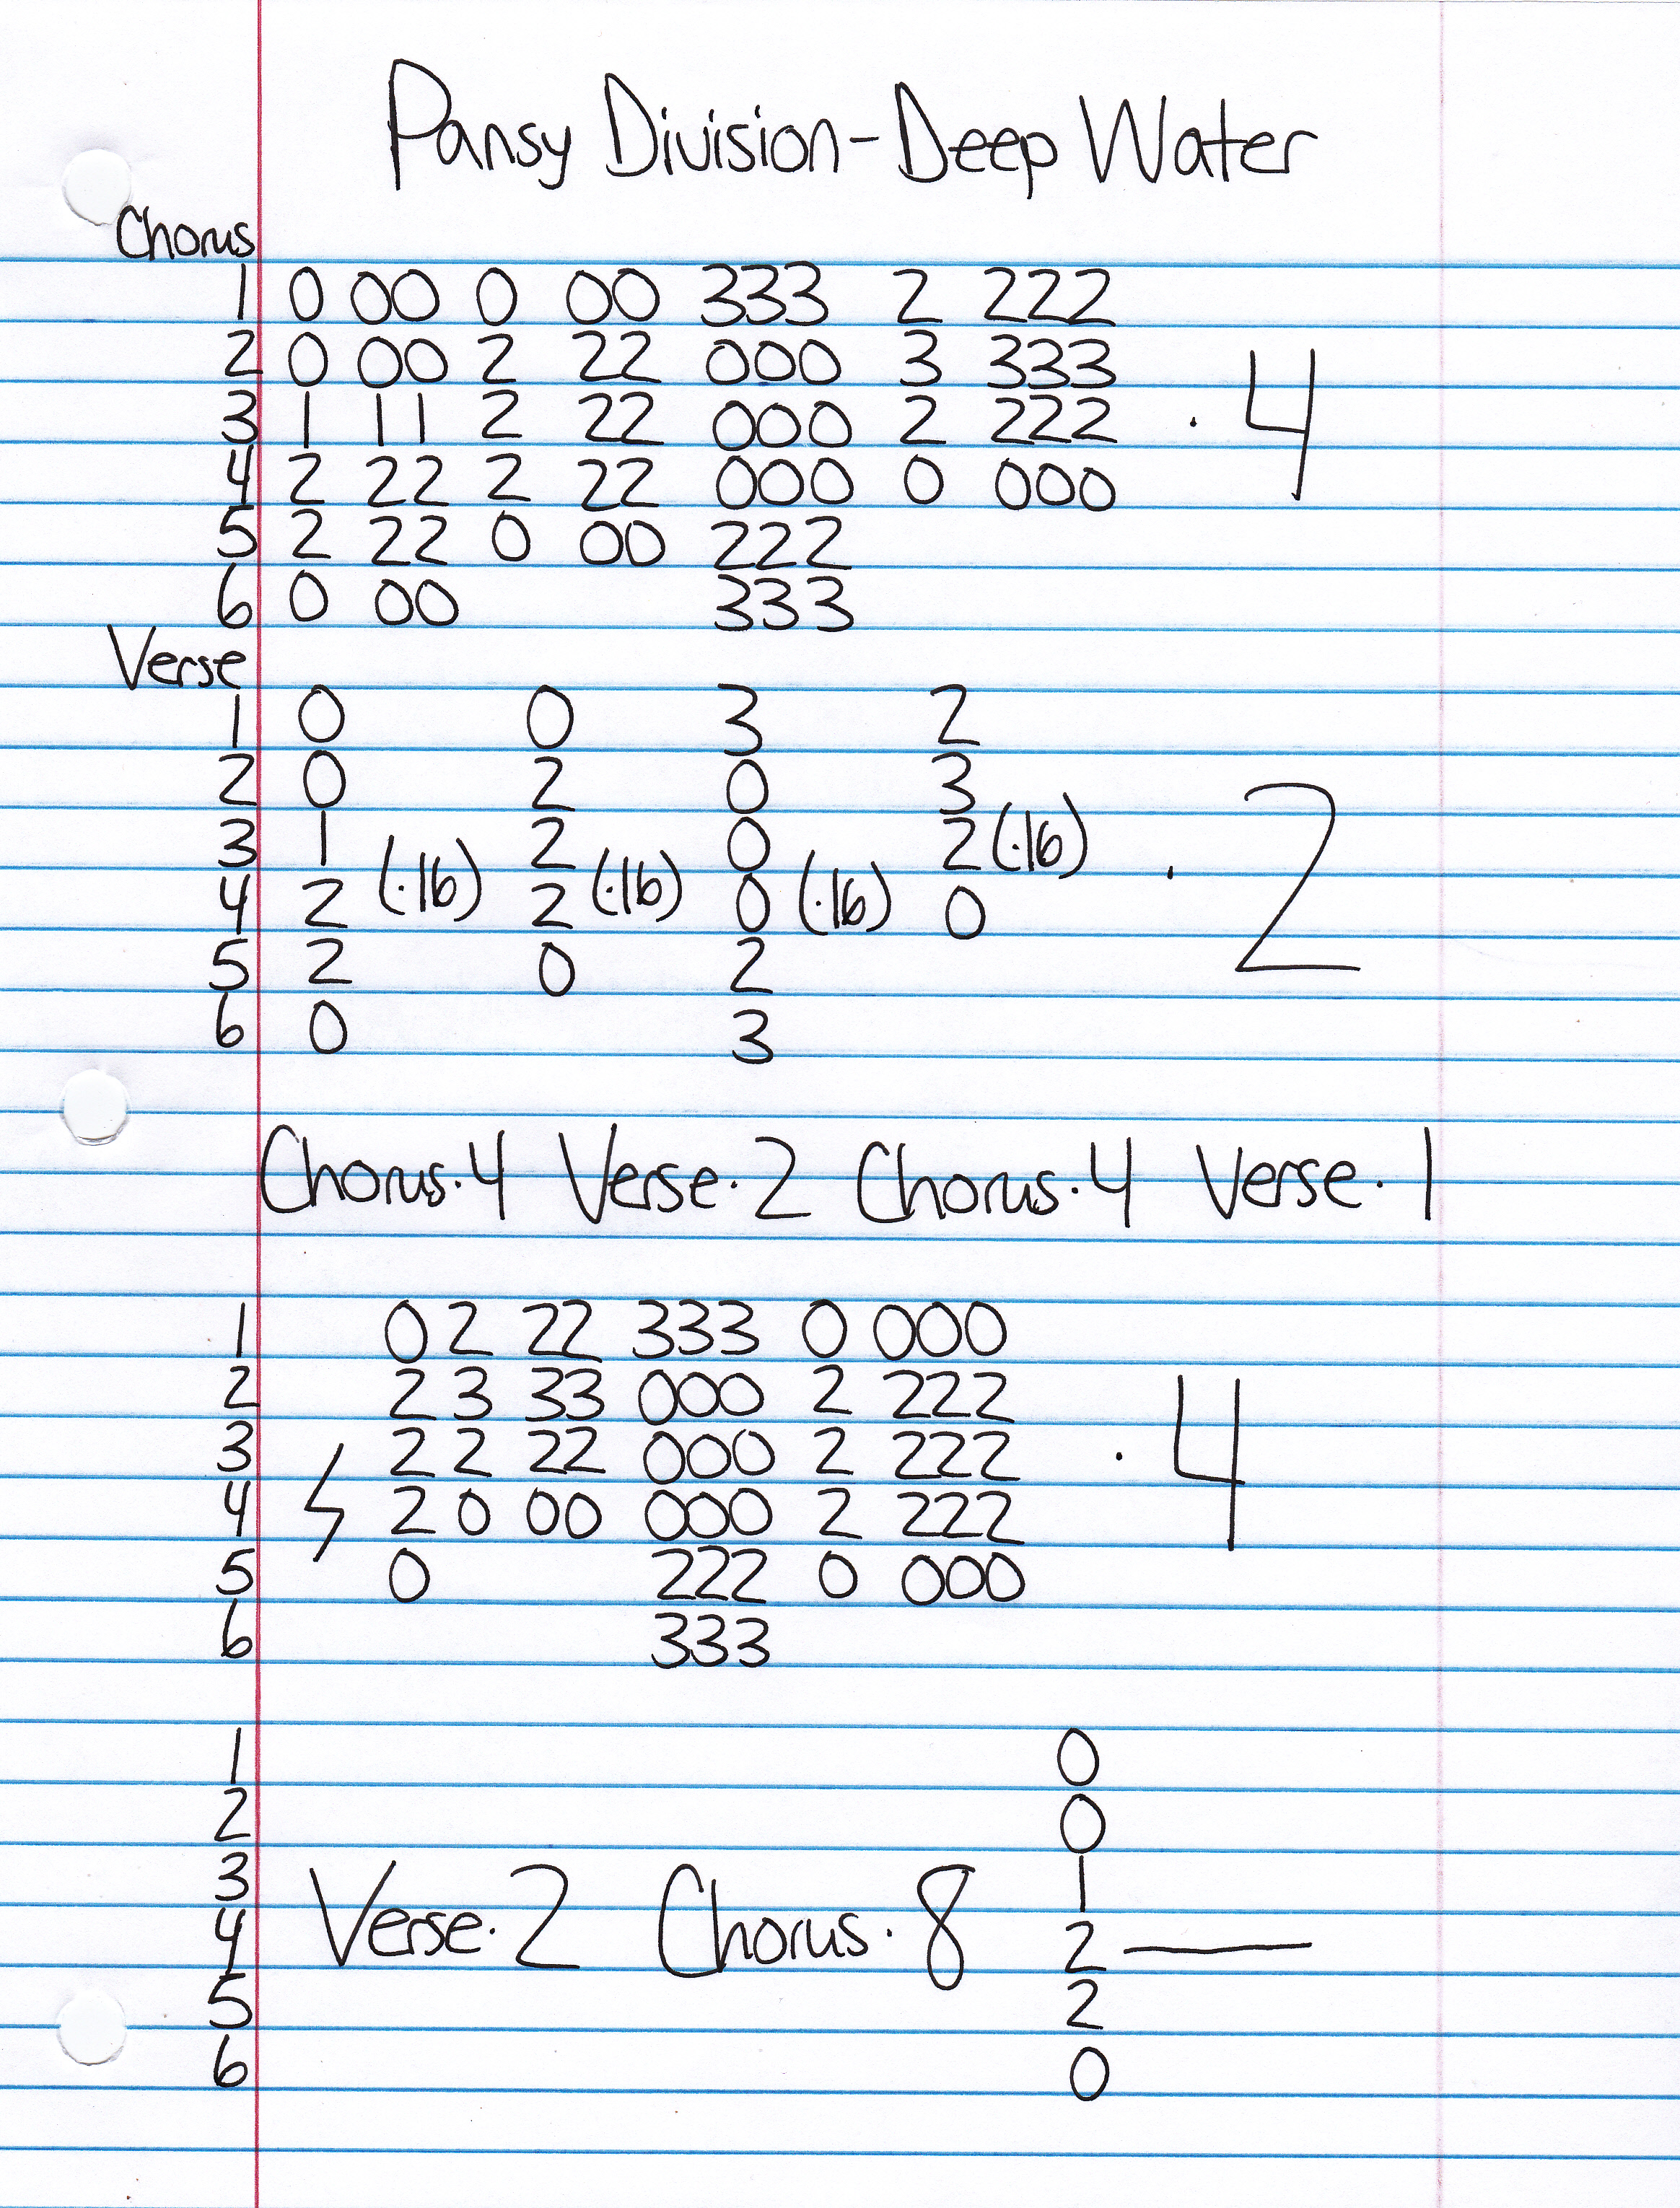 Pansy Division-Deep Water
Chorus
1 0 00 0 00 333 2 222
2 0 00 2 22 000 3 333
3 1 11 2 22 000 2 222 · 4
4 2 22 2 22 000 0 000
5 2 22 0 00 222
6 0 00 333
Verse
1 0 0 3 2
2 0 2 0 3
3 1 2 0 2 (·16)
4 2 (·16) 2 (·16) 0 (·16) 0 · 2
5 2 0 2
6 0 3
Chorus·4 Verse·2 Chorus·4 Verse·1
1 0 2 22 333 0 000
2 2 3 33 000 2 222
3 2 2 22 000 2 222 · 4
4 2 0 00 000 2 222
5 0 222 0 000
6 333
1 0
2 0
3 1
4 Verse·2 Chorus·8 2 —
5 2
6 0